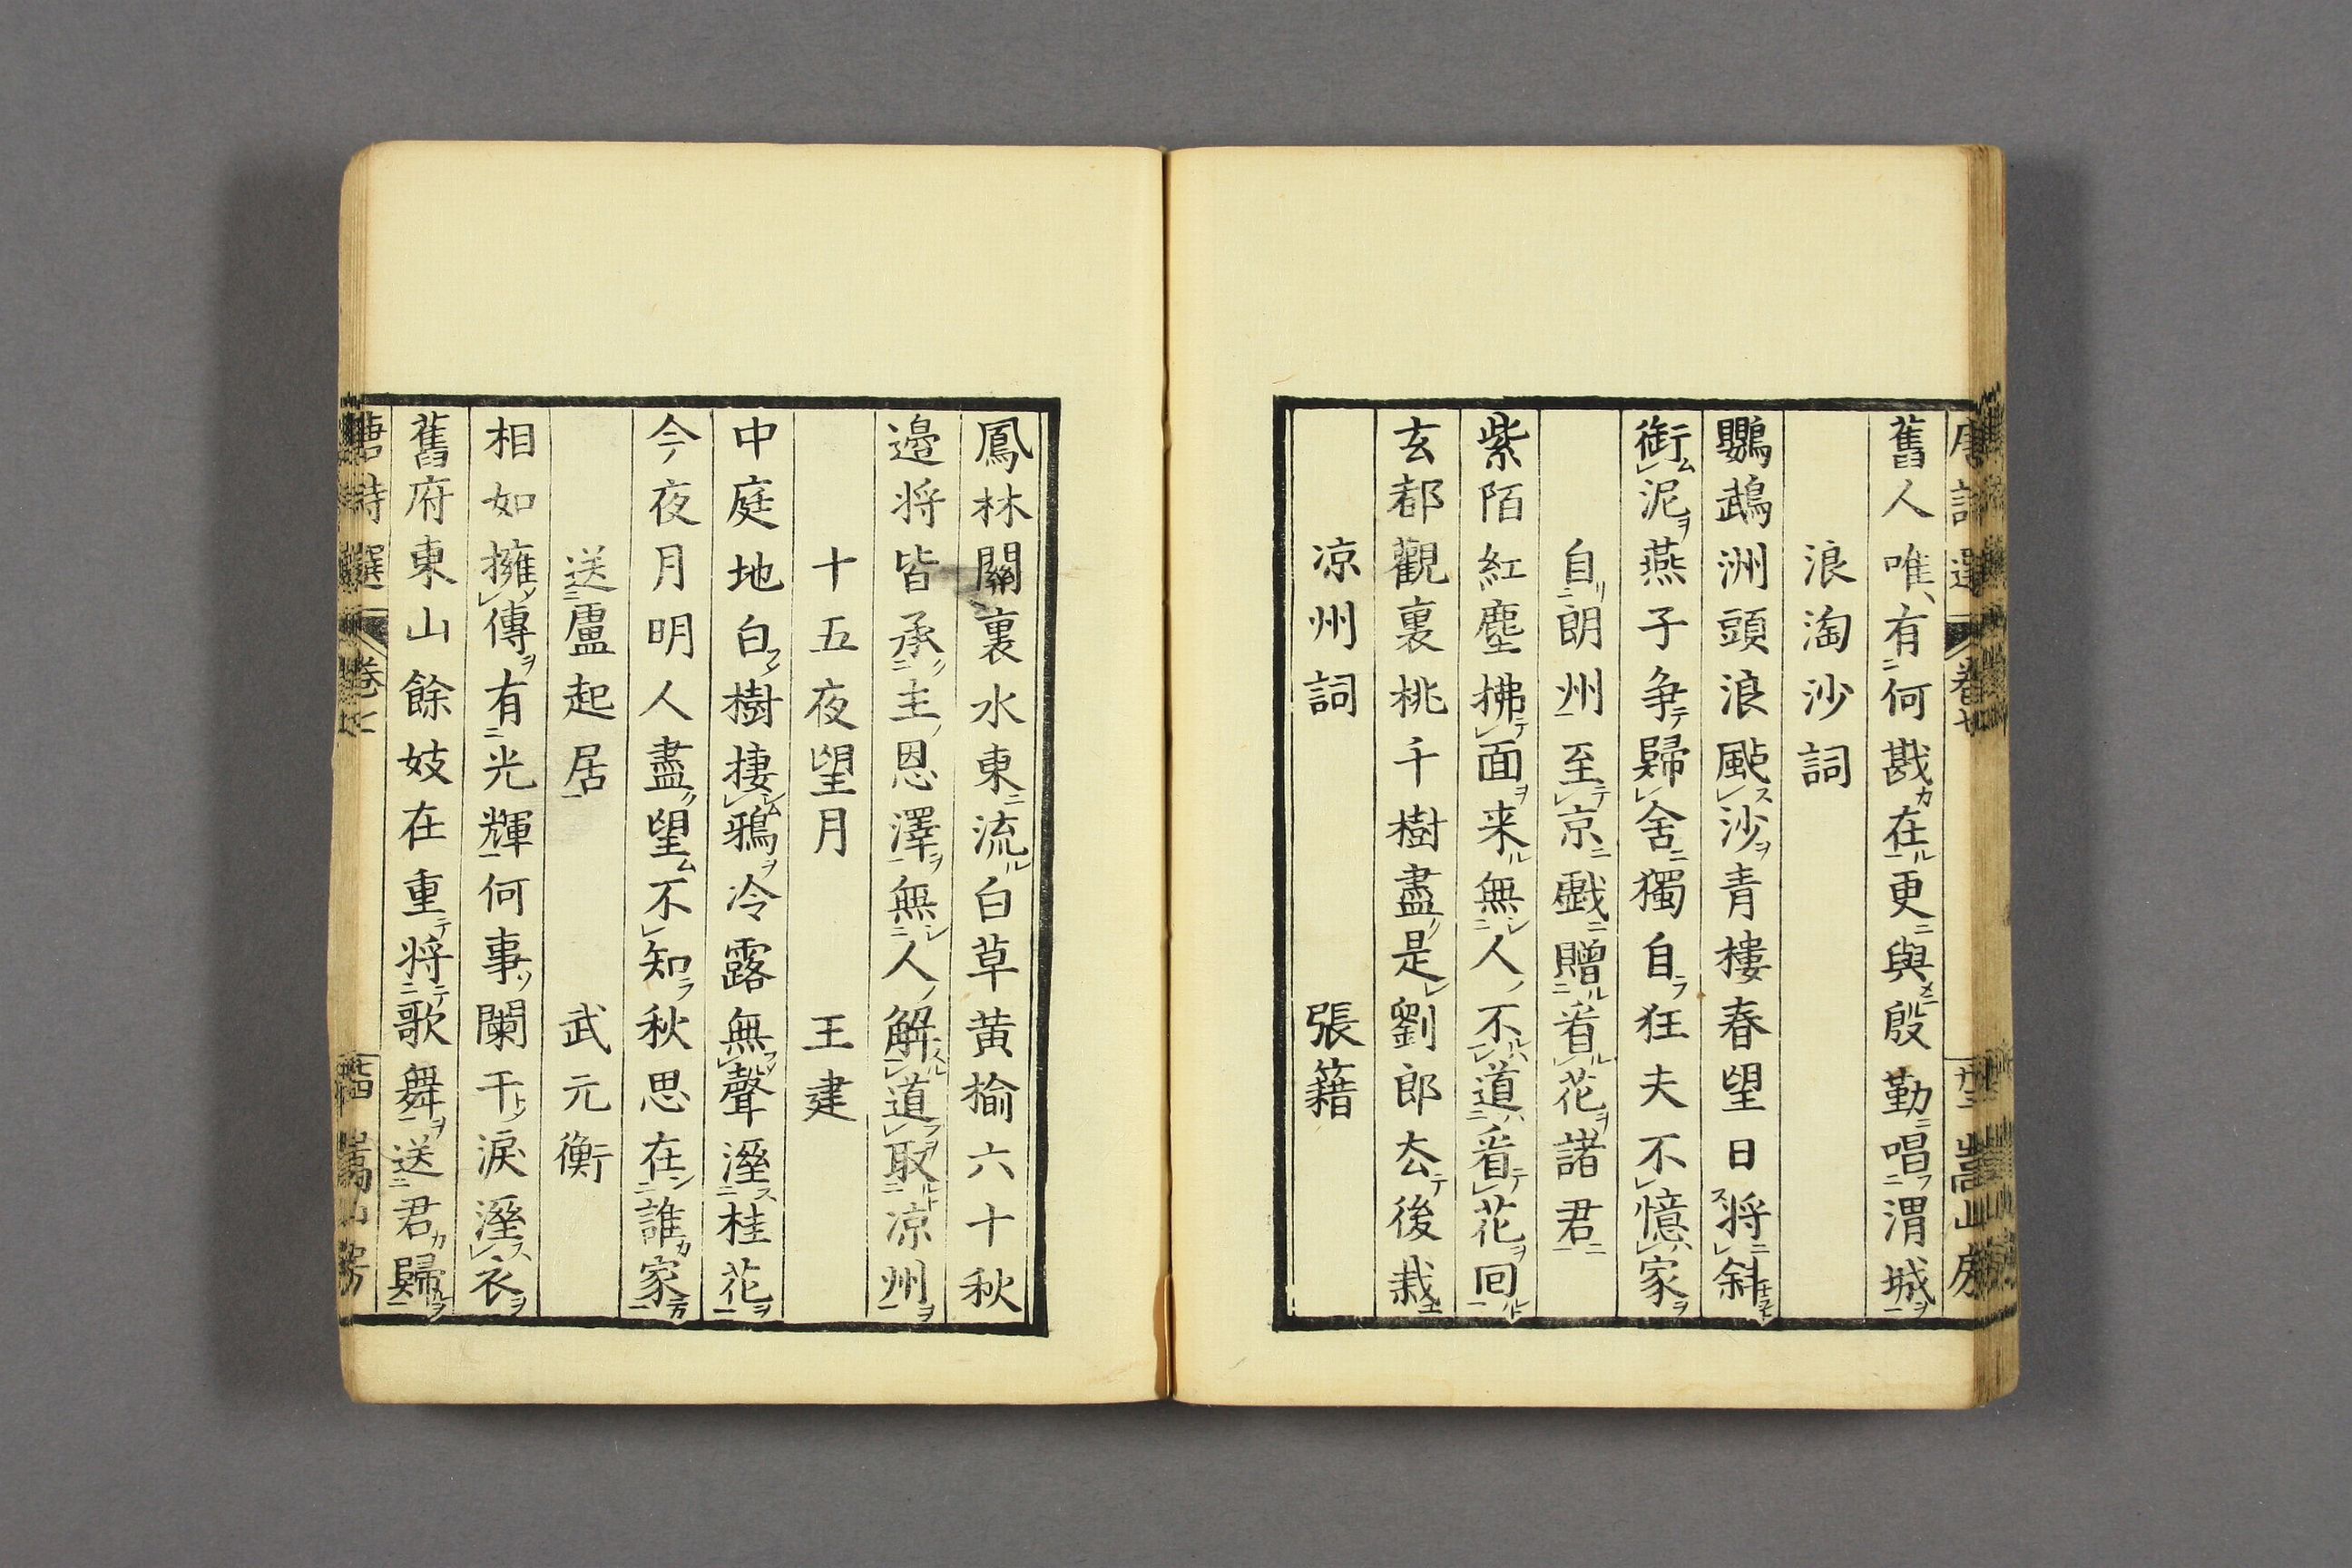 唐詩選
舊人唯有何戡在更與殷勤唱渭城
浪淘沙詞
鸚鵡洲頭浪颭沙青樓春望日将斜
銜泥燕子争歸舍獨自狂夫不憶家
自朗州至京戯贈看花諸君
紫陌紅塵拂面来無人不道看花回
玄都觀裏桃千樹盡是劉郎去後栽
凉州詞　張籍
鳳林關裏水東流白草黄榆六十秋
邉将皆承主恩澤無人解道取凉州
十五夜望月　王建
中庭地白樹棲鴉冷露無聲溼桂花
今夜月明人盡望不知秋思在誰家
送盧起居　武元衡
相如擁傳有光輝何事闌干淚溼衣
舊府東山餘妓在重将歌舞送君歸
唐詩選　卷七　嵩山房